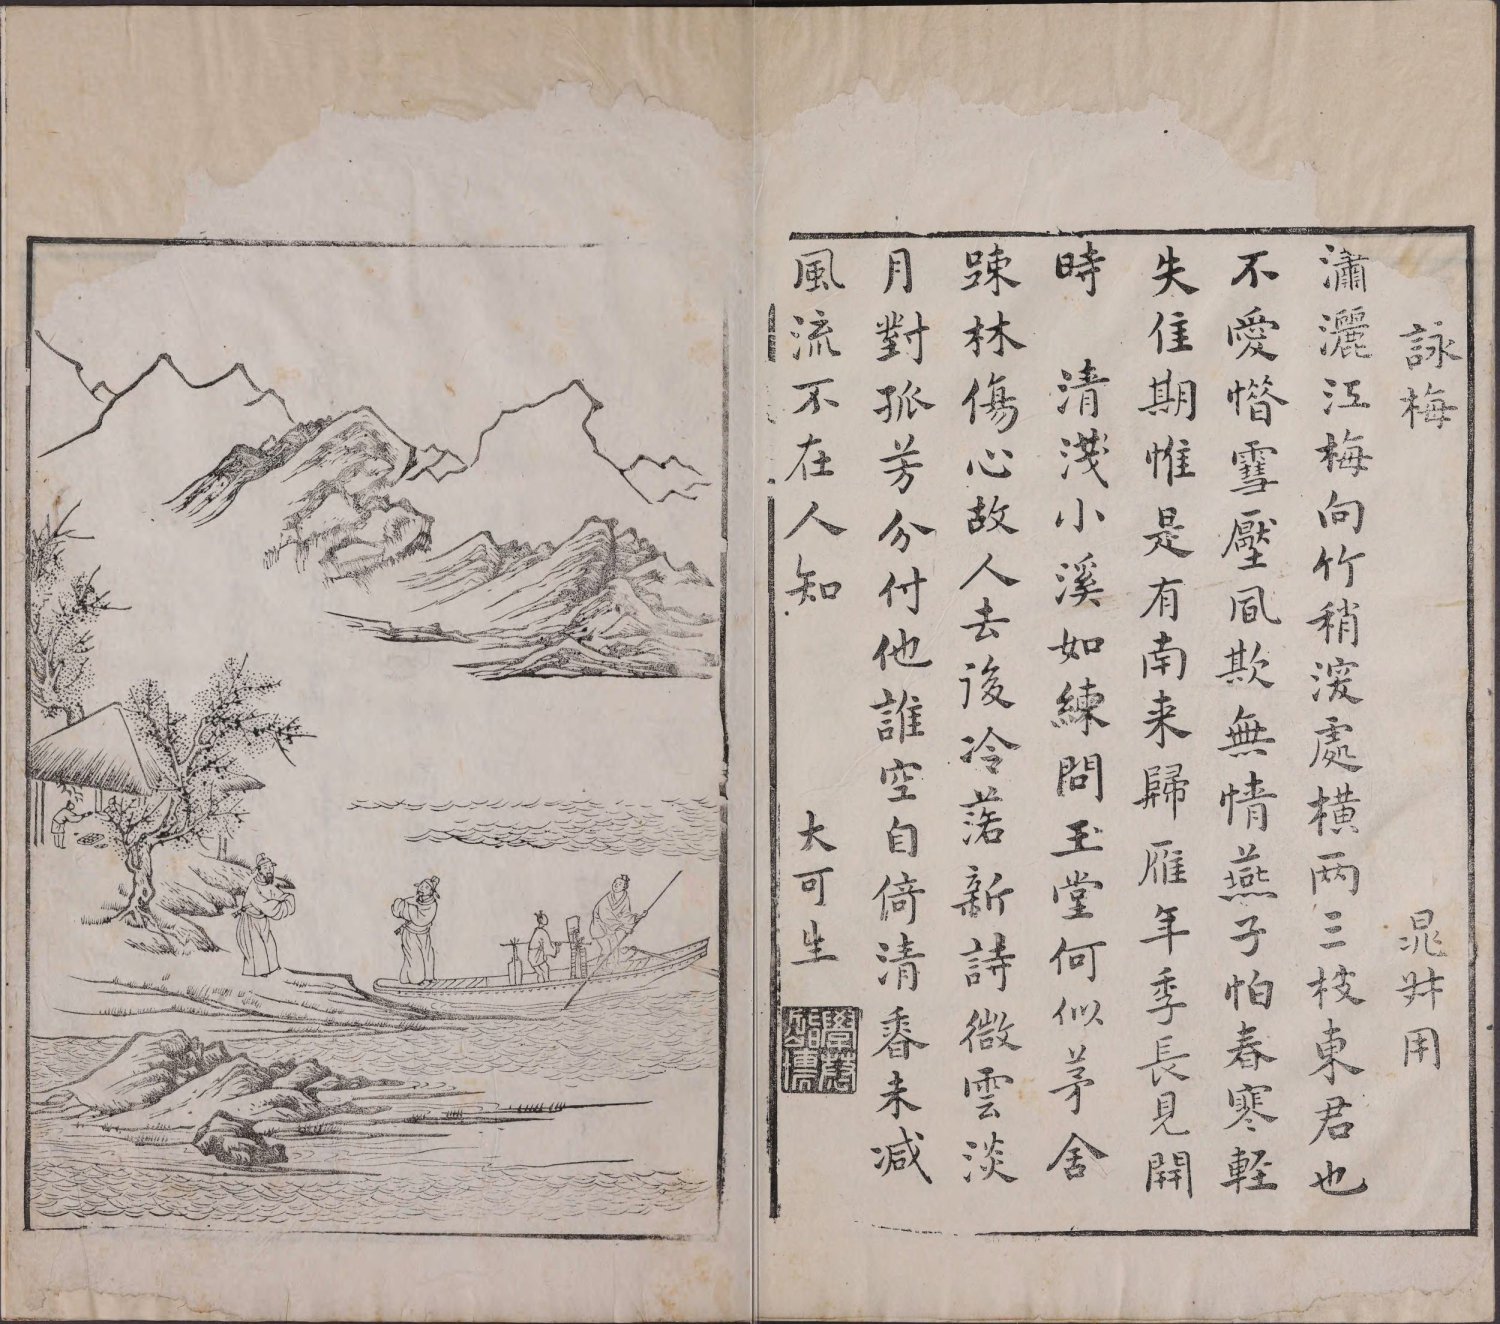 詠梅 晁叔用
瀟灑江梅向竹稍深處橫兩三枝東君也
不愛惜雪壓風欺無情燕子怕春寒輕
失佳期惟是有南来歸雁年季長見開
時 清淺小溪如練問玉堂何似茅舍
踈林傷心故人去後冷落新詩微雲淡
月對孤芳分付他誰空自倚清香未减
風流不在人知 大可生